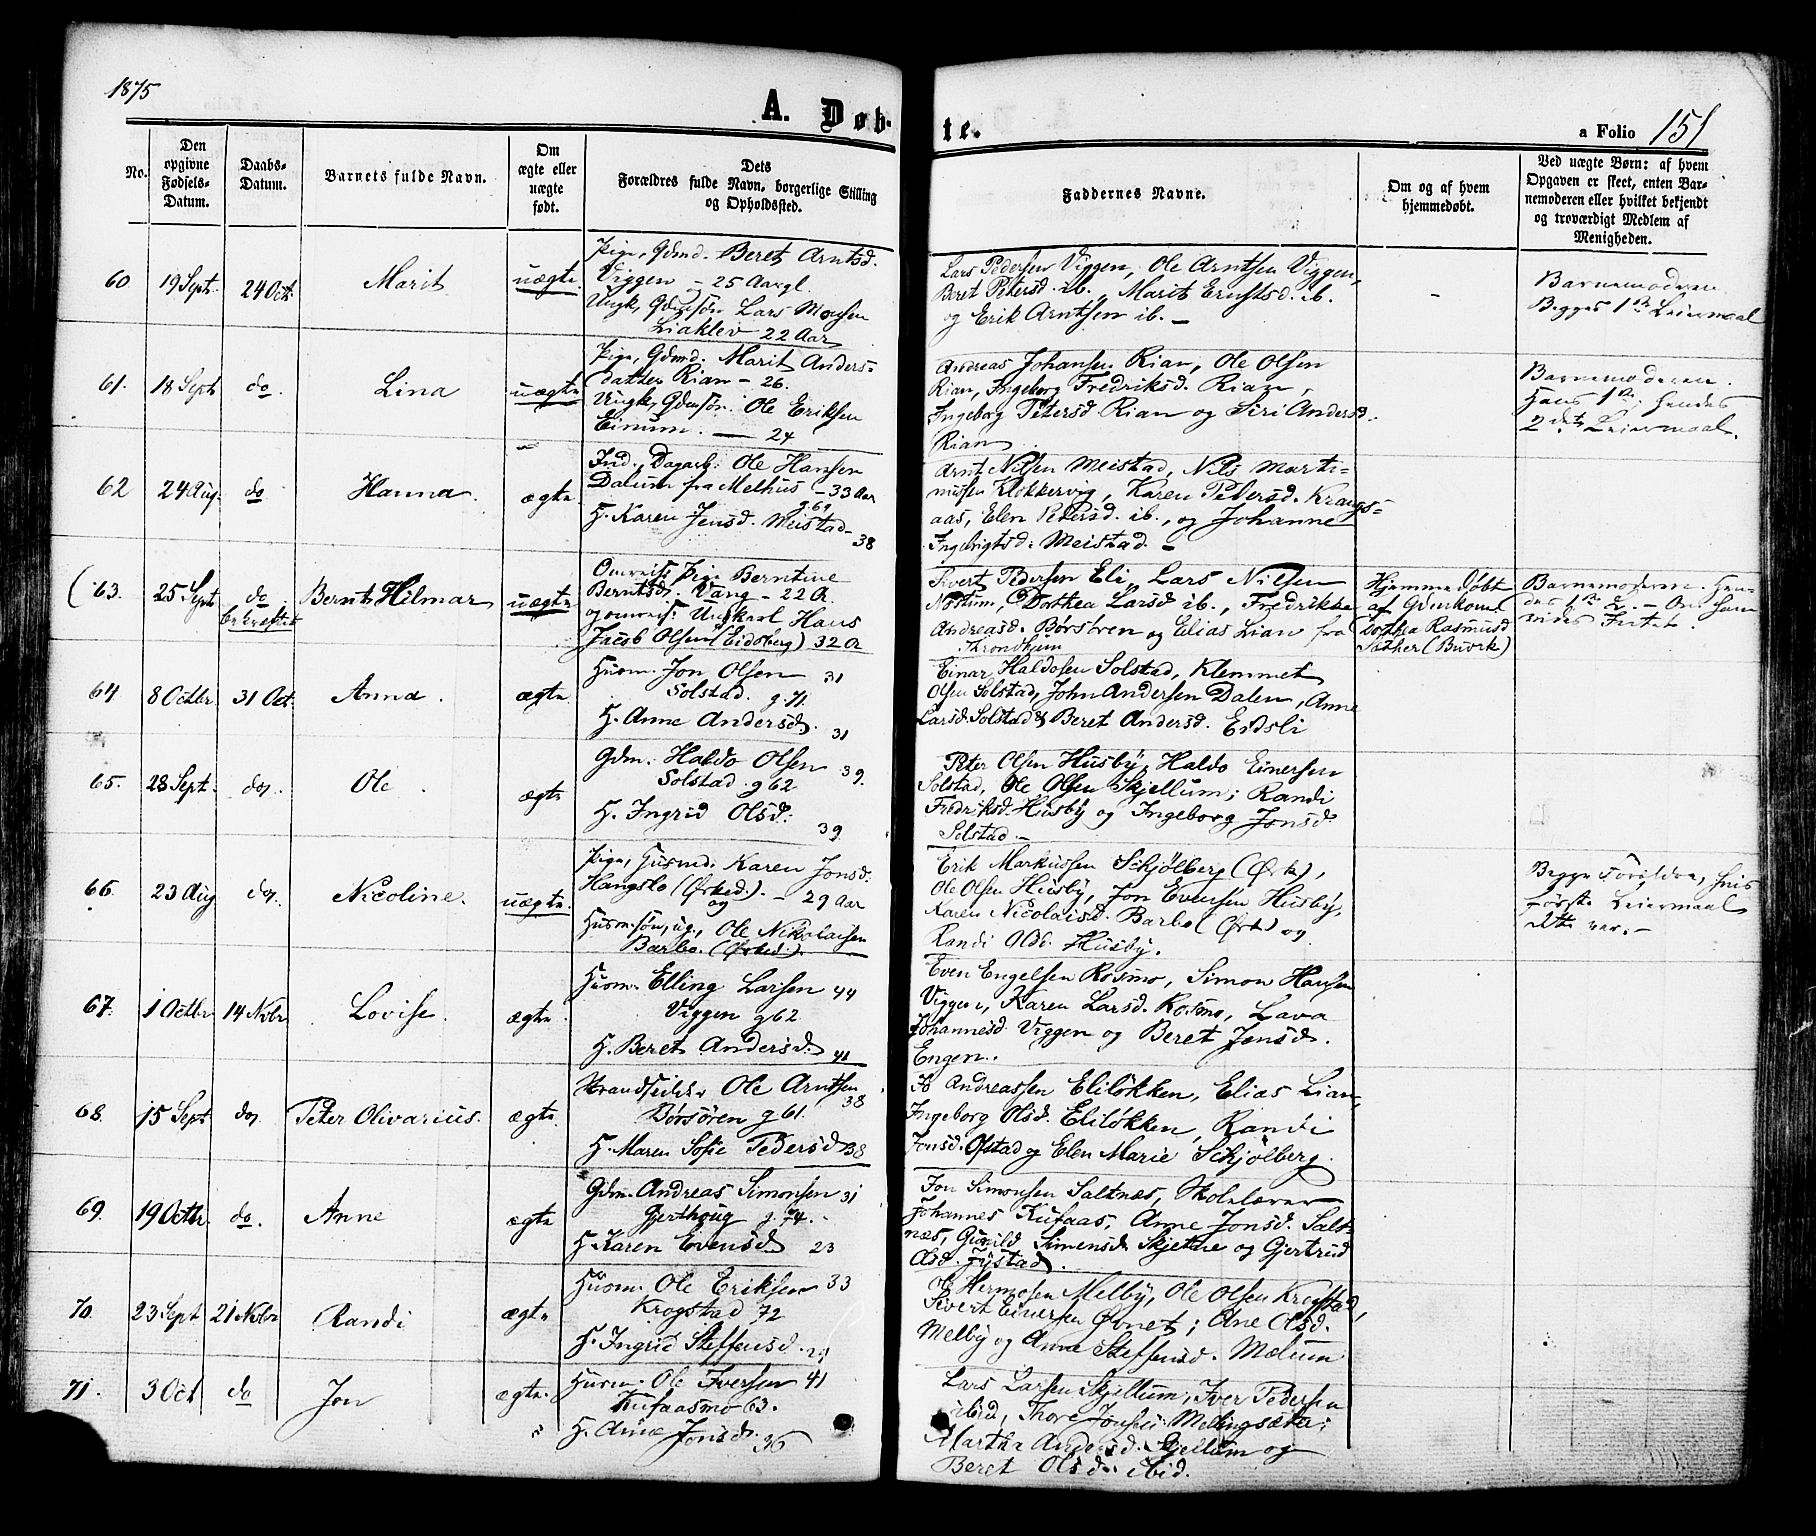 1875
A. Døb-
te.
a Folio 151
No.
Den
opgivne
Fødsels-
Datum.
Daabs-
Datum.
Barnets fulde Navn.
Om
ægte eller
uægte
født.
Dets
Forældres fulde Navn, borgerlige Stilling
og Opholdssted.
Faddernes Navne.
Om og af hvem
hjemmedøbt.
Ved uægte Børn: af hvem
Opgaven er skeet, enten Bar-
nemoderen eller hvilket bekjendt
og troværdigt Medlem af
Menigheden.
60 19 Sept. 24 Oct. Marit uægte.
Pige, Gdmd. Beret Arntsd.
Viggen og - 25 Aar gl.
Ungk, Gdmsøn Lars Monsen
Liaklev 22 Aar
Lars Pedersen Viggen, Ole Arntsen Viggen,
Beret Petersd. ib., Marit Ernstsd. ib.
og Erik Arntsen ib. -
Barnemoderen
Begges 1ste Leiermaal
61. 18 Sept. do. Lina uægte
Pige, Gdmd. Marit Anders-
datter Rian - 26.
Ungk, Gdmsøn. Ole Eriksen
Einum. - 24
Andreas Johansen Rian, Ole Olsen
Rian, Ingeborg Fredriksd. Rian,
Ingeborg Petersd Rian og Siri Andersd.
Rian
Barnemoderen.
Hans 1ste, hendes
2det Leiermaal.
62 24 Aug. do Hanna. ægte
Ind., Dagarb. Ole Hansen
Dalum fra Melhus - 33 Aar
g. 69
H. Karen Jensd. Meistad - 38
Arnt Nilsen Meistad, Nils Marti-
nussen Klokkervig, Karen Pedersd. Krangs-
aas, Elen Petersd. ib., og Johanne
Ingebrigtsd. Meistad. -
63. 25 Sept do Bekræftet Bernt Hilmar uægte
Omreis. Pige Berntine
Berntsd. Vang - 22 A.
og omreis. Ungkarl Hans
Jacob Olsen (Eidsberg) 32 A
Sivert Pedersen Eli, Lars Nilsen
Nostum, Dorthea Larsd ib., Fredrikke
Andreasd. Børsøren og Elias Lian fra
Throndhjem
Hjemmedøbt
af Gdmkone
Dorthea Rasmusd
Sæther (Buvik)
Barnemoderen. Hen-
des 1ste L. - Om ham
vides Intet.
64 8 Octbr. 31 Oct. Anna. ægte
Husm. Jon Olsen 31
Solstad. g. 71.
H. Anne Andersd. 31
Einar Haldosen Solstad, Klemmet
Olsen Solstad, John Andersen Dalen, Anne
Larsd. Solstad & Beret Andersd. Eidsli
65. 28 Sept. do. Ole ægte
Gdm. Haldo Olsen 39.
Solstad. g 62
H. Ingrid Olsd. 39
Peter Olsen Husby, Haldo Einersen
Solstad, Ole Olsen Skjellum; Randi
Fredriksd. Husby og Ingeborg Jonsd.
Solstad. -
66. 23 Aug do. Nicoline. uægte.
Pige, Husmd. Karen Jonsd.
Hangslo (Ørked.) - 29 Aar
og
Husmsøn, ug. Ole Nikolaisen
Barbo. (Ørked.)
Erik Markussen Schjølberg (Ørk),
Ole Olsen Husby, Jon Evensen Husby,
Karen Nicolaisd. Barbo (Ørk) og
Randi Olsd. Husby.
Begge Forældre, hvis
første Leiermaal
dette var. -
67. 1 Octbr 14 Novbr Lovise. ægte.
Husm. Elling Larsen 44
Viggen g 62
H. Beret Andersd. 41
Even Engelsen Rosmo, Simon Hansen
Viggen, Karen Larsd. Rosmo, Lava
Johannesd. Viggen og Beret Jonsd.
Engen.
68. 15 Sept do. Peter Olivarius. ægte.
Strandsidder Ole Arntsen
Børsøren g 61. 38
H. Maren Sofie Pedersd 38
Jo Andreassen Eliløkken, Elias Lian,
Ingeborg Olsd. Eliløkken, Randi
Jonsd. Ofstad og Elen Marie Schjølberg.
69. 19 Octbr. do. Anne ægte
Gdm. Andreas Simonsen 31
Gjerthoug g. 74.
H. Karen Evensd 23
Jon Simonsen Saltnæs, Skolelærer
Johannes Kufaas, Anne Jonsd. Salt-
næs, Gunild Simensd. Skjethe og Gjertrud
Olsd. Fystad.
70. 23 Sept 21 Novbr Randi ægte
Husm. Ole Eriksen 33
Krogstad 72
H. Ingrid Steffensd. 29
Ole Hermosen Melby, Ole Olsen Krogstad,
Sivert Einersen Øvnet; Ane Olsd.
Melby og Anne Steffensd. Mælum
71. 3 Oct do Jon ægte.
Husm. Ole Iversen 41
Kufaasmo 63.
H. Anne Jonsd. 36
Lars Larsen Skjellum, Iver Pedersen
ibid, Thore Jonsen Mellingsæter;
Martha Andersd. Skjellum og
Beret Olsd. ibid.